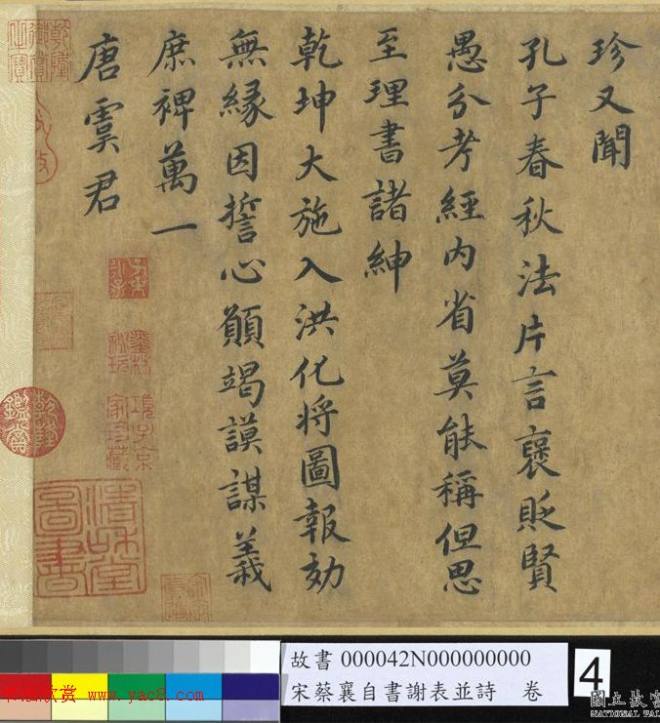 珍又聞
孔子春秋法片言褒貶賢
愚分考經內省莫能稱但思
至理書諸紳
乾坤大施入洪化將圖報効
無緣因誓心願竭謨謀義
庶裨萬一
唐虞君
乾隆鑑賞
故書 000042N000000000
宋蔡襄自書謝表並詩 卷
4
www.yac8.com
國立故宮
NATIONAL PA